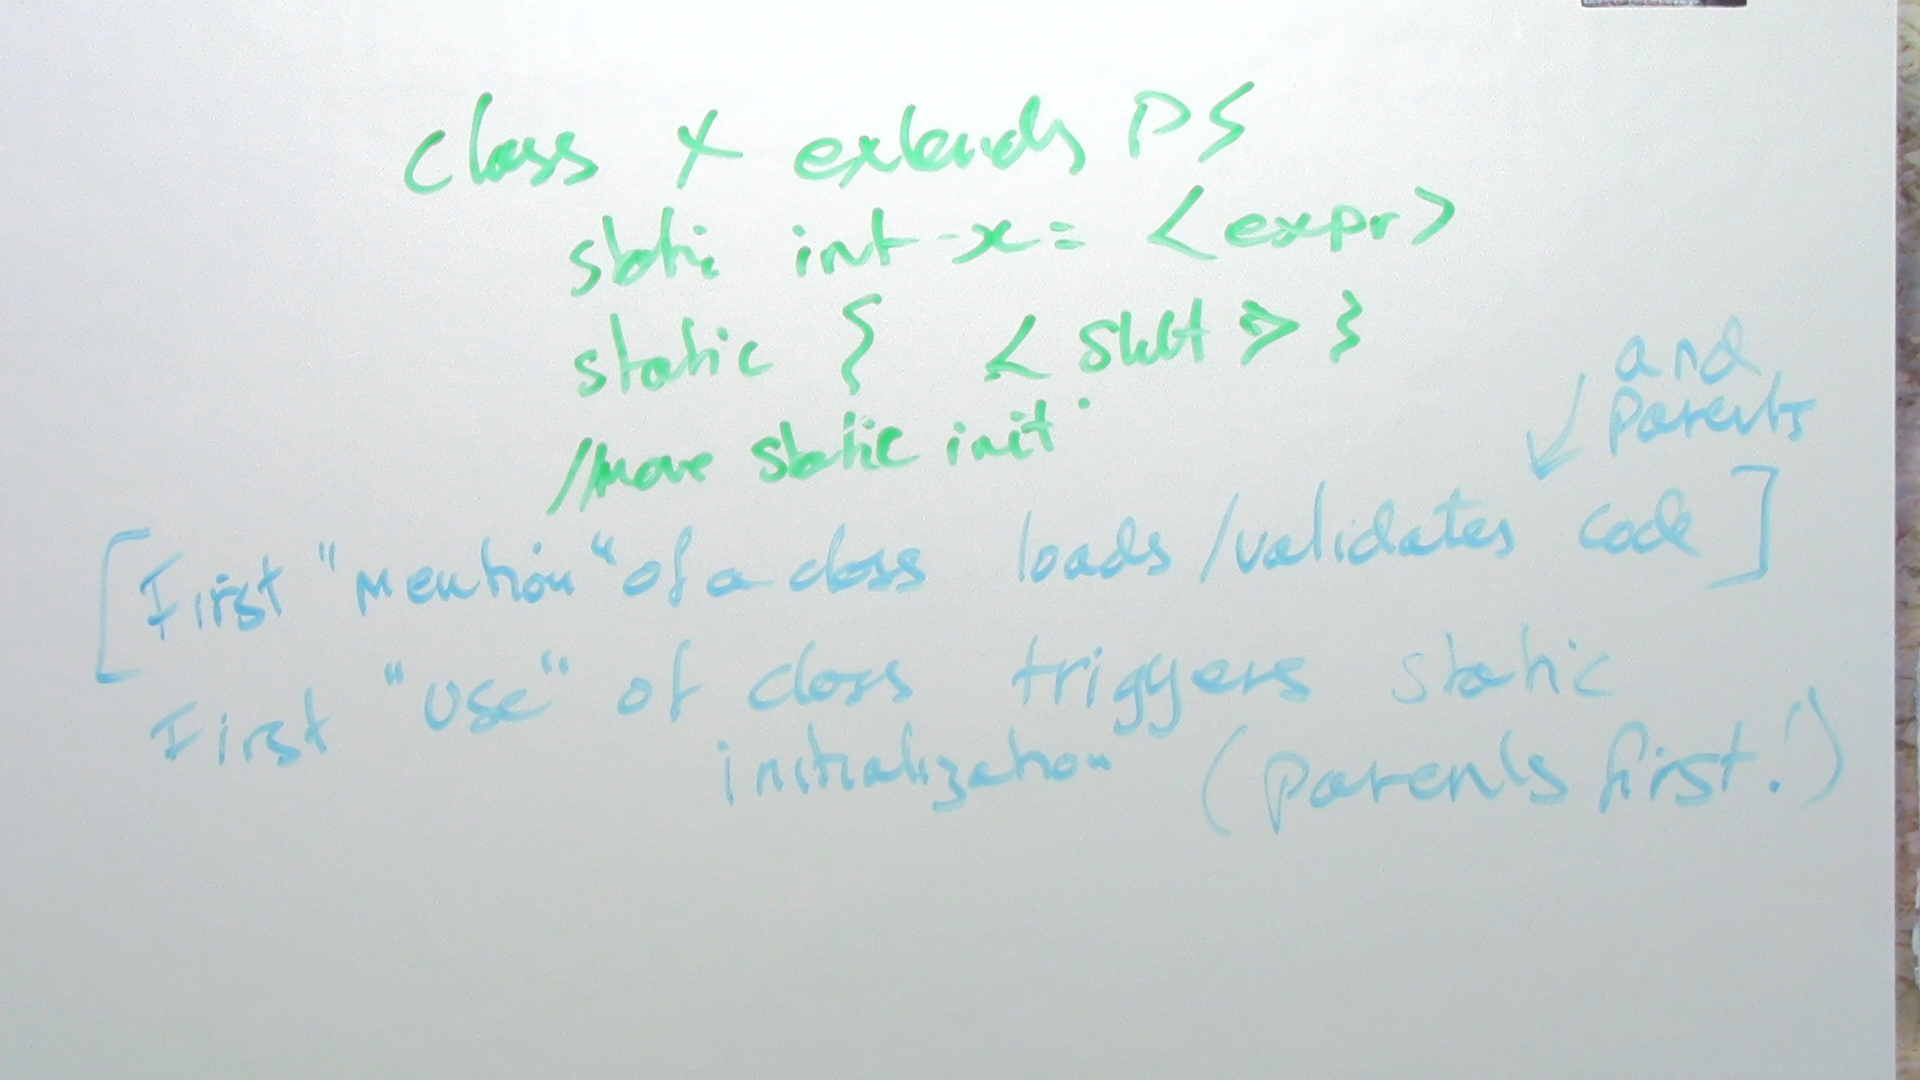 class X extends P {
static int x = <expr>
static { <stmt> }
//more static init
and
parents
[First "mention" of a class loads/validates code]
First "use" of class triggers static
initialization (parents first!)